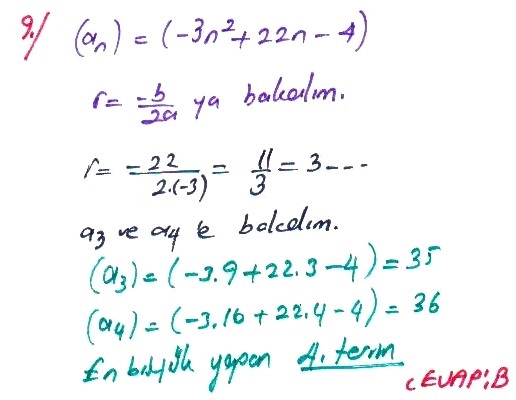 9./ (aₙ) = (-3n²+22n-4)
r= -b/2a ya bakalım.
r= -22/2.(-3) = 11/3 = 3---
a₃ ve a₄ e bakalım.
(a₃)=(-3.9+22.3-4)=35
(a₄)=(-3.16+22.4-4)=36
En büyük yapan 4. terim
CEVAP:B